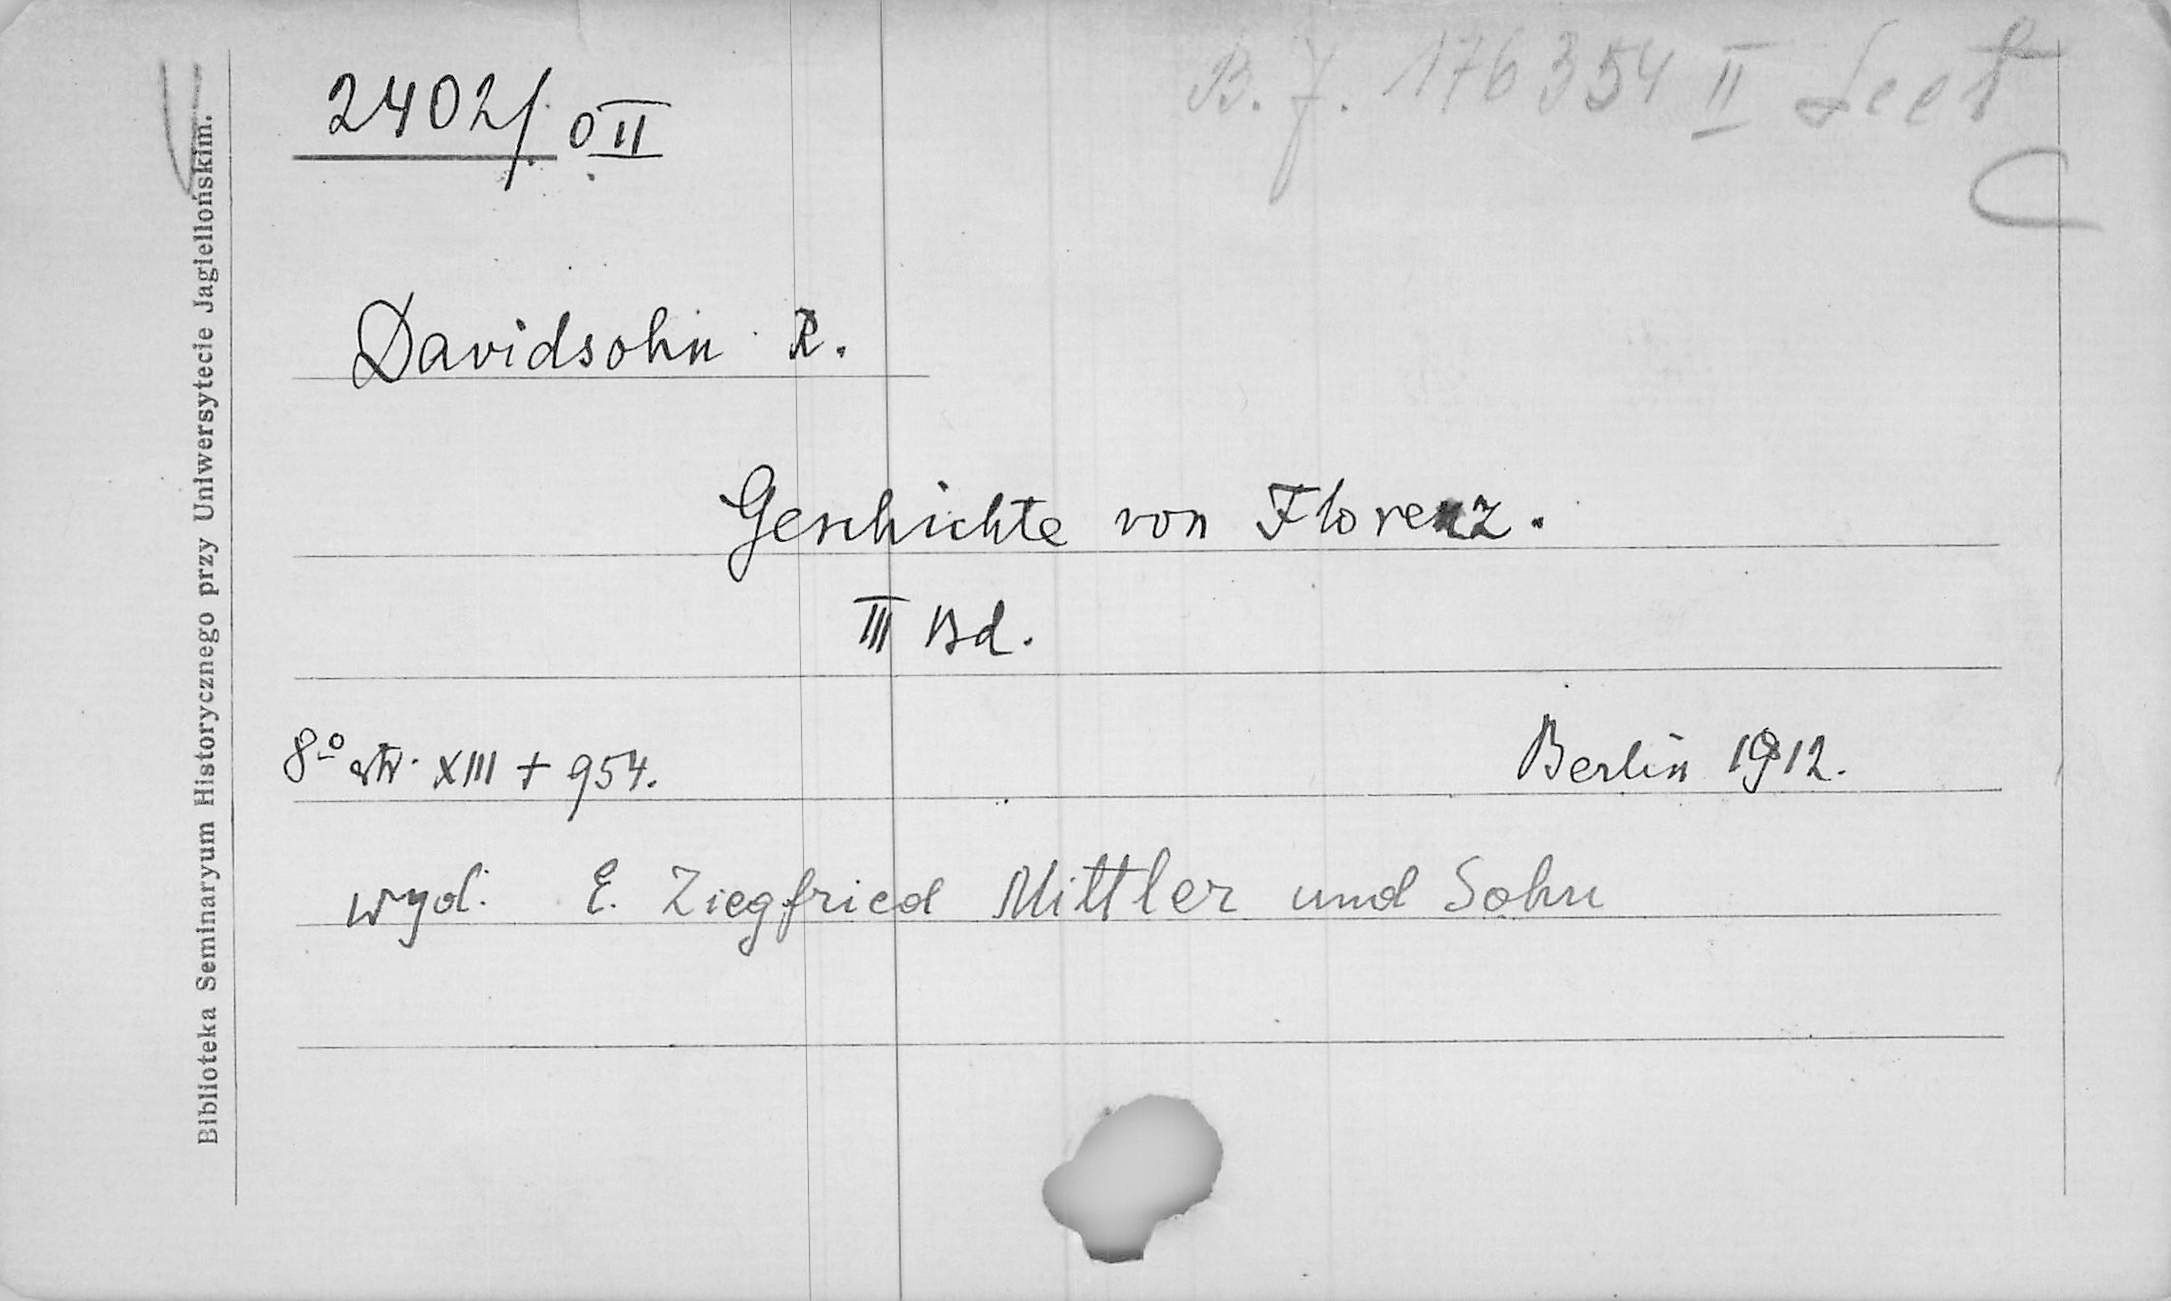 2402/0II
B. J. 176354 II
Davidsohn R.
Geschichte von Florenz.
III Bd.
8º str. XIII + 954.
Berlin 1912.
wyd. E. Ziegfried Mittler und Sohn
Biblioteka Seminaryum Historycznego przy Uniwersytecie Jagiellońskim.